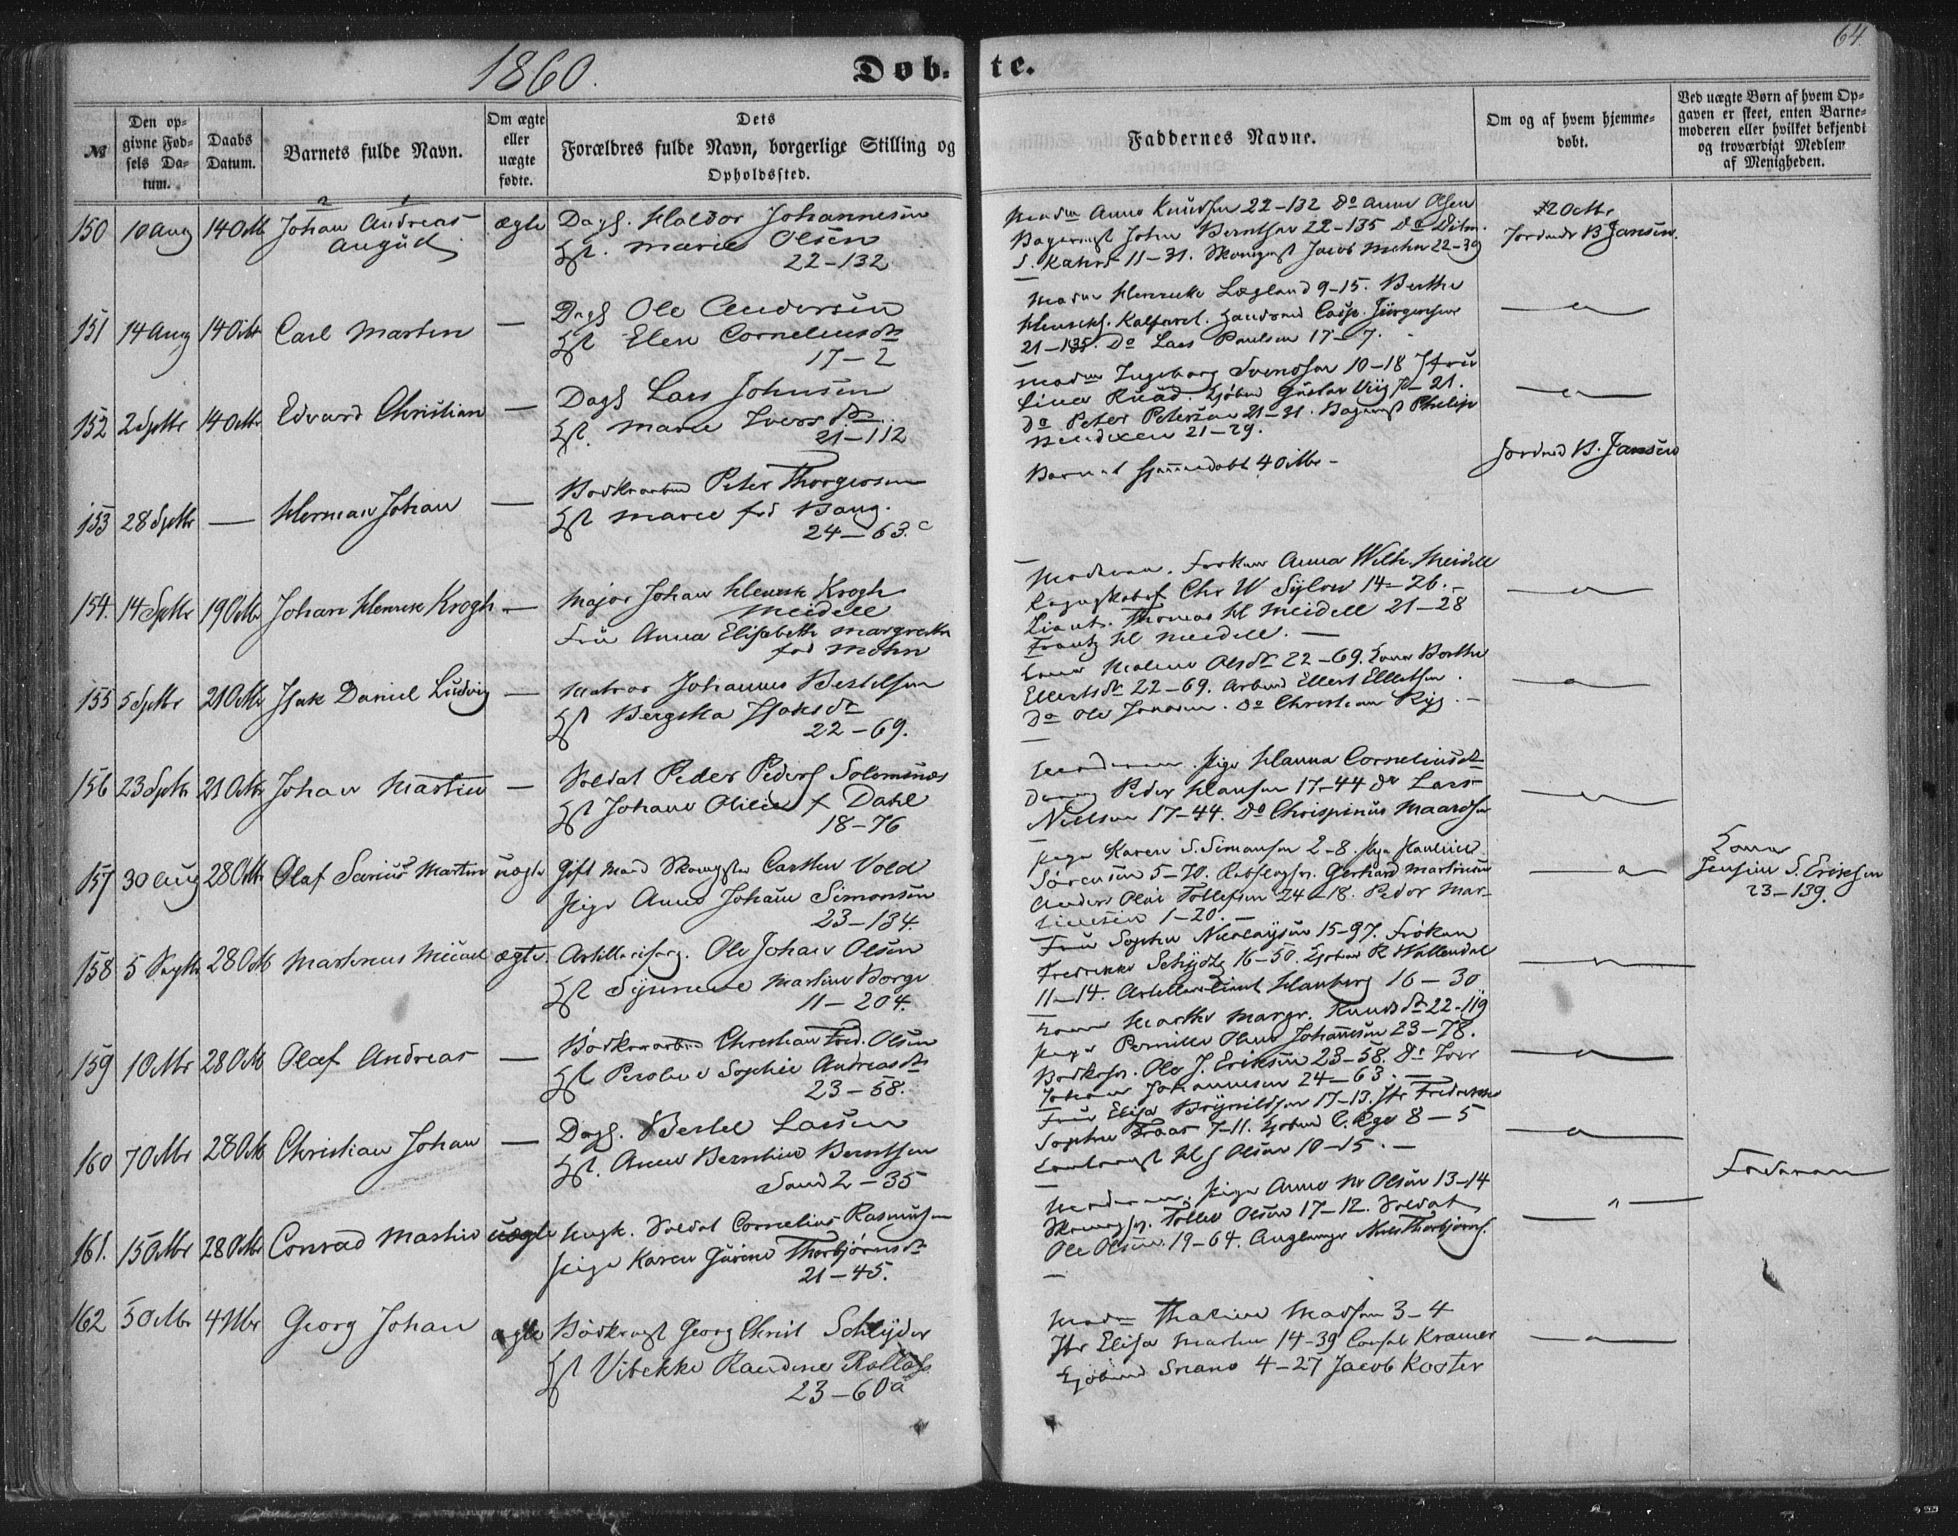 64
1860.
Døb- te.
№
Den op-
givne Fød-
sels Da-
tum.
Daabs
Datum.
Barnets fulde Navn.
Om ægte
eller
uægte
fødte.
Dets
Forældres fulde Navn, borgerlige Stilling og
Opholdssted.
Faddernes Navne.
Om og af hvem hjemme-
døbt.
Ved uægte Børn af hvem Op-
gaven er skeet, enten Barne-
moderen eller hvilket bekjendt
og troværdigt Medlem
af Menigheden.
2 1
150 10 Aug 14 Octb Johan Andreas ægte Dags. Haldor Johannesen
August Hst. Marie Olsen
22-132
Madm Anna Knudsen 22-132 Do Anna Olsen
Bagersvst John Berntsen 22-135 Do Ditm.
S. Kahrs 11-31. Skomgst Jacob Mohn 22-39
Jordmdr B Jansen.
151 14 Aug 14 Octbr Carl Martin — Dags Ole Andersen
Hst Elen Corneliusdtr
17-2
Madm Henrikke Lægland 9-15. Berthe
Henriks. Kalfaret. Casp. Jürgensen
21-135. Do Lars Paulsen 17-7.
152 2 Septbr 14 Octbr Edvard Christian — Dags Lars Johnsen
Hst. Marie Iversdtr
21-112
Madm Ingeborg Svendsen 10-18 Jfru
Lina Ruud. Kjøbmd Gustav Viig 21.
Do Peter Petersen 21-21. Bagersvst Philip
Bendixen 21-29.
153 28 Septbr — Herman Johan — Bødkerarbmd Peter Thorgersen
Hst Marie fød Bang.
24-63.c
Barnet hjemmedøbt 4 Octbr -
Jordmd B. Jansen
154. 14 Septbr 19 Octbr Johan Henrik Krogh — Major Johan Henrik Krogh
Meidell
Fru Anna Elisabeth Margrethe
fød Mohn
Moderen. Frøken Anna Wilh. Meidell
Chr W Sylow 14-26. -
Lieut. Thomas H Meidell 21-28
Frantz H Meidell. —
155 5 Septbr 21 Octbr Isak Daniel Ludvig — Matros Johannes Bertelsen
Hst Bergitha Isaksdtr
22-69.
Kone Malene Olsdtr 22-69. Kone Berthe
Ellertsdtr 22-69. Arbmd Ellert Ellertsen.
Do Ole Jonasen. Do Christian Rÿg. -
156 23 Septbr 21 Octbr Johan Martin — Soldat Peder Peders Solemsnæs
Hst Johane Oline f Dahl
18-76
Moderen. Pige Hanna Corneliusdtr
Dreng Peder Hansen 17-44 Do Lars
Nielsen 17-44. Do Chrispinus Maardsen
157 30 Aug 28 Octbr Olaf Sarius Martin uægte Gift Mand Skomgstr Carsten Vold
Pige Anne Johan Simonsen
23-134.
Pige Karen S. Simonsen 2-8. Pige Pauline
Sørensen 5-70. Gerhard Martinsen
Anders Olai Tollefsen 24-18. Peder Mar-
tinsen 1-20. -
Kone
Jensine S. Eriksen
23-139.
158 5 Septbr 28 Octb Martinus Michael ægte. Artillerisarg. Ole Johan Olsen
Hst Synneve Martine Borge
11-204.
Fru Sophie Nicolaysen 15-97. Frøken
Fredrikke Schydtz 16-50. Kjøbmd R Wallendal
11-14. Artillerilieut Hamberg 16-30
159 1 Octbr 28 Octb Olaf Andreas — Bødkerarbmd Christian Fred. Olsen
Hst Peroline Sophie Andreasdtr
23-58.
Kone Marthe Margr. Knudsdtr 22-119
Pige Pernille Oline Johannesen 23-78.
Bødkersv. Ole J. Eriksen 23-58. Do Iver
Johan Johannesen 24-63. —
160 7 Octbr 28 Octb Christian Johan — Dags. Bertel Larsen
Hst. Anne Berntine Berntsen
Sand 2-35
Fru Elisa Brynildsen 17-13. Jfr Fredrikke
Sophie Traas 7-11. Kjøbmd C. Rge 8-5
H J Olsen 10-15. —
161. 15 Octbr 28 Octbr Conrad Martin uægte Ungk. Soldat Cornelius Rasmussen
Pige Karen Gurine Thorbjørnsdtr
21-45.
Moderen. Pige Anne M Olsen 13-14
Skomagsv. Tollev Olsen 17-12. Soldat
Ole Olsen 19-64. Ungkarl Niels Thorbjørns.
Faderen
162 5 Octbr 4 Nbr Georg Johan ægte Bødkersvst Georg Christ Schlÿder
Hst Vibekke Randine Rolfass
23-60a
Madm Thaline Madsen 3-4
Jfr Elisa Martens 14-39 Consul Kramer
Kjøbmd Snano 4-27 Jacob Koster